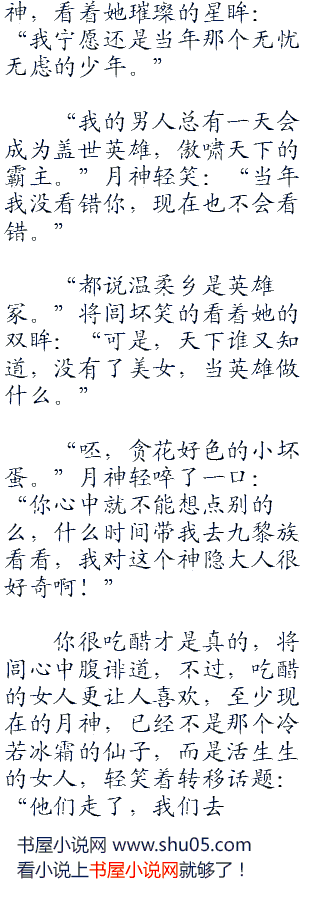 神，看着她璀璨的星眸：
“我宁愿还是当年那个无忧
无虑的少年。”
“我的男人总有一天会
成为盖世英雄，傲啸天下的
霸主。”月神轻笑：“当年
我没看错你，现在也不会看
错。”
“都说温柔乡是英雄
冢。”将闾坏笑的看着她的
双眸：“可是，天下谁又知
道，没有了美女，当英雄做
什么。”
“呸，贪花好色的小坏
蛋。”月神轻啐了一口：
“你心中就不能想点别的
么，什么时间带我去九黎族
看看，我对这个神隐大人很
好奇啊！”
你很吃醋才是真的，将
闾心中腹诽道，不过，吃醋
的女人更让人喜欢，至少现
在的月神，已经不是那个冷
若冰霜的仙子，而是活生生
的女人，轻笑着转移话题：
“他们走了，我们去
书屋小说网 www.shu05.com
看小说上书屋小说网就够了！